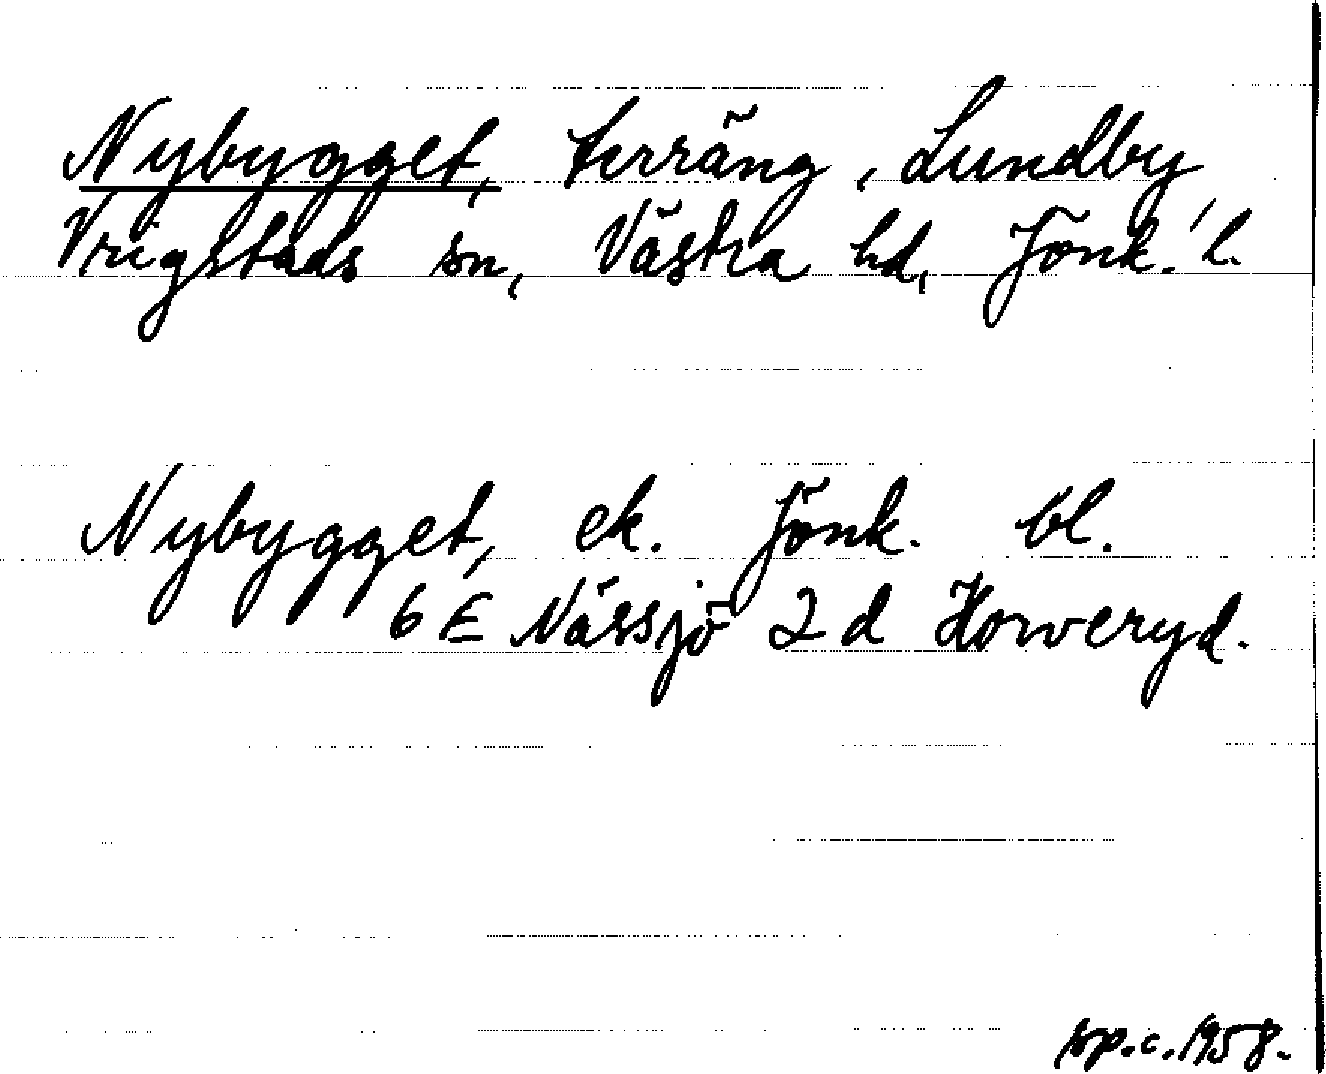 Nybygget, terräng, Lundby
Vrigstads sn, Västra hd, Jönk. l.
Nybygget, ek. Jönk. bl.
6 E Nässjö 2 d Horveryd.
sp.c. 1958.